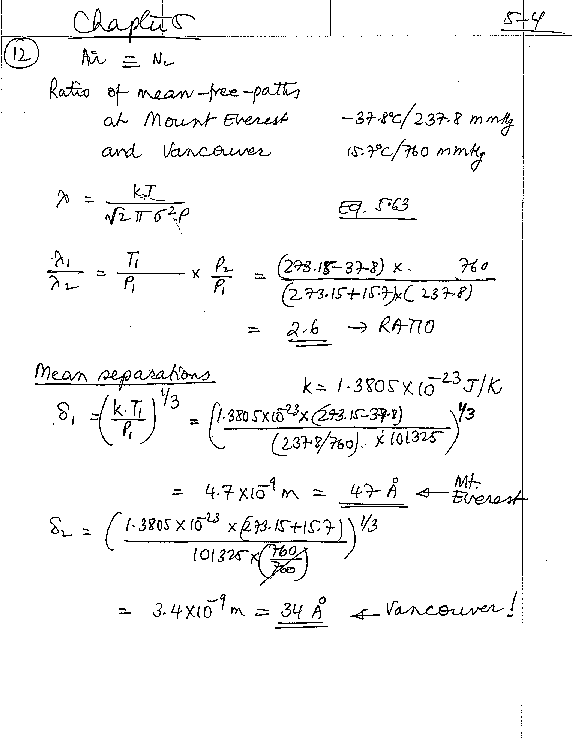 Chapter 5 5-4
(12) Air ≡ N₂
Ratio of mean-free-paths
at Mount Everest -37.8°C/237.8 mmHg
and Vancouver 15.7°C/760 mmHg
λ = kT / (√2 π σ² P) Eq. 5.63
λ₁/λ₂ = T₁/P₁ × P₂/P₁ = (273.15-37.8) × 760 / (273.15+15.7)×(237.8)
= 2.6 → RATIO
Mean separations k = 1.3805 × 10⁻²³ J/K
δ₁ = (k.T₁/P₁)^1/3 = (1.3805×10⁻²³×(273.15-37.8) / (237.8/760) × 101325)^1/3
= 4.7×10⁻⁹ m = 47 Å ← Mt. Everest
δ₂ = (1.3805×10⁻²³ × (273.15+15.7) / 101325×(760/760))^1/3
= 3.4×10⁻⁹ m = 34 Å ← Vancouver!